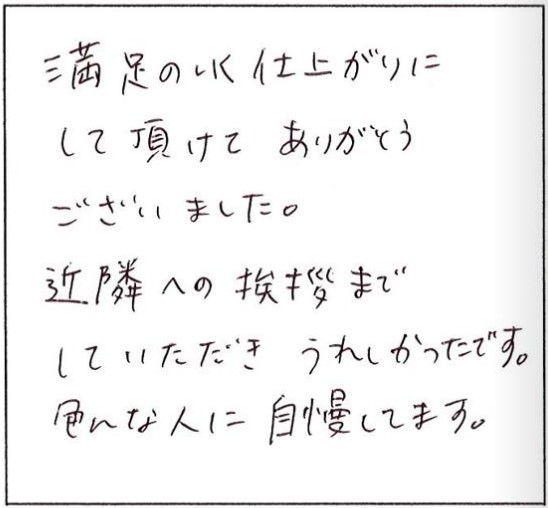 満足のいく仕上がりに
して頂けて ありがとう
ございました。
近隣への挨拶まで
していただき うれしかったです。
色んな人に 自慢してます。